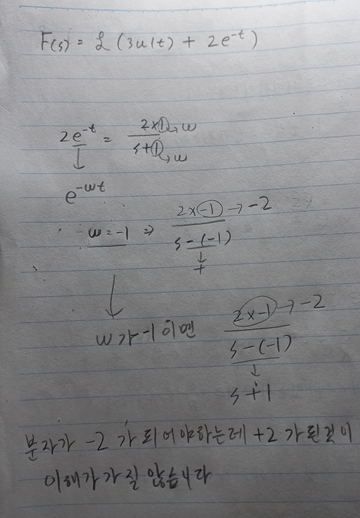 F(s) = ℒ (3u(t) + 2e^{-t})
2e^{-t} = \frac{2×1}{s+1} → w → w
↓
e^{-wt}
w = -1 ⇒ \frac{2×-1}{s-(-1)} → -2
↓
+
↓
w가 -1 이면 \frac{2×-1}{s-(-1)} → -2
↓
s+1
분자가 -2 가 되어야하는데 +2 가 된것이
이해가 가질 않습니다